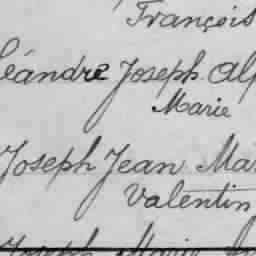 François
Léandre Joseph Alp
Marie
Joseph Jean Mar
Valentin
Joseph Marie